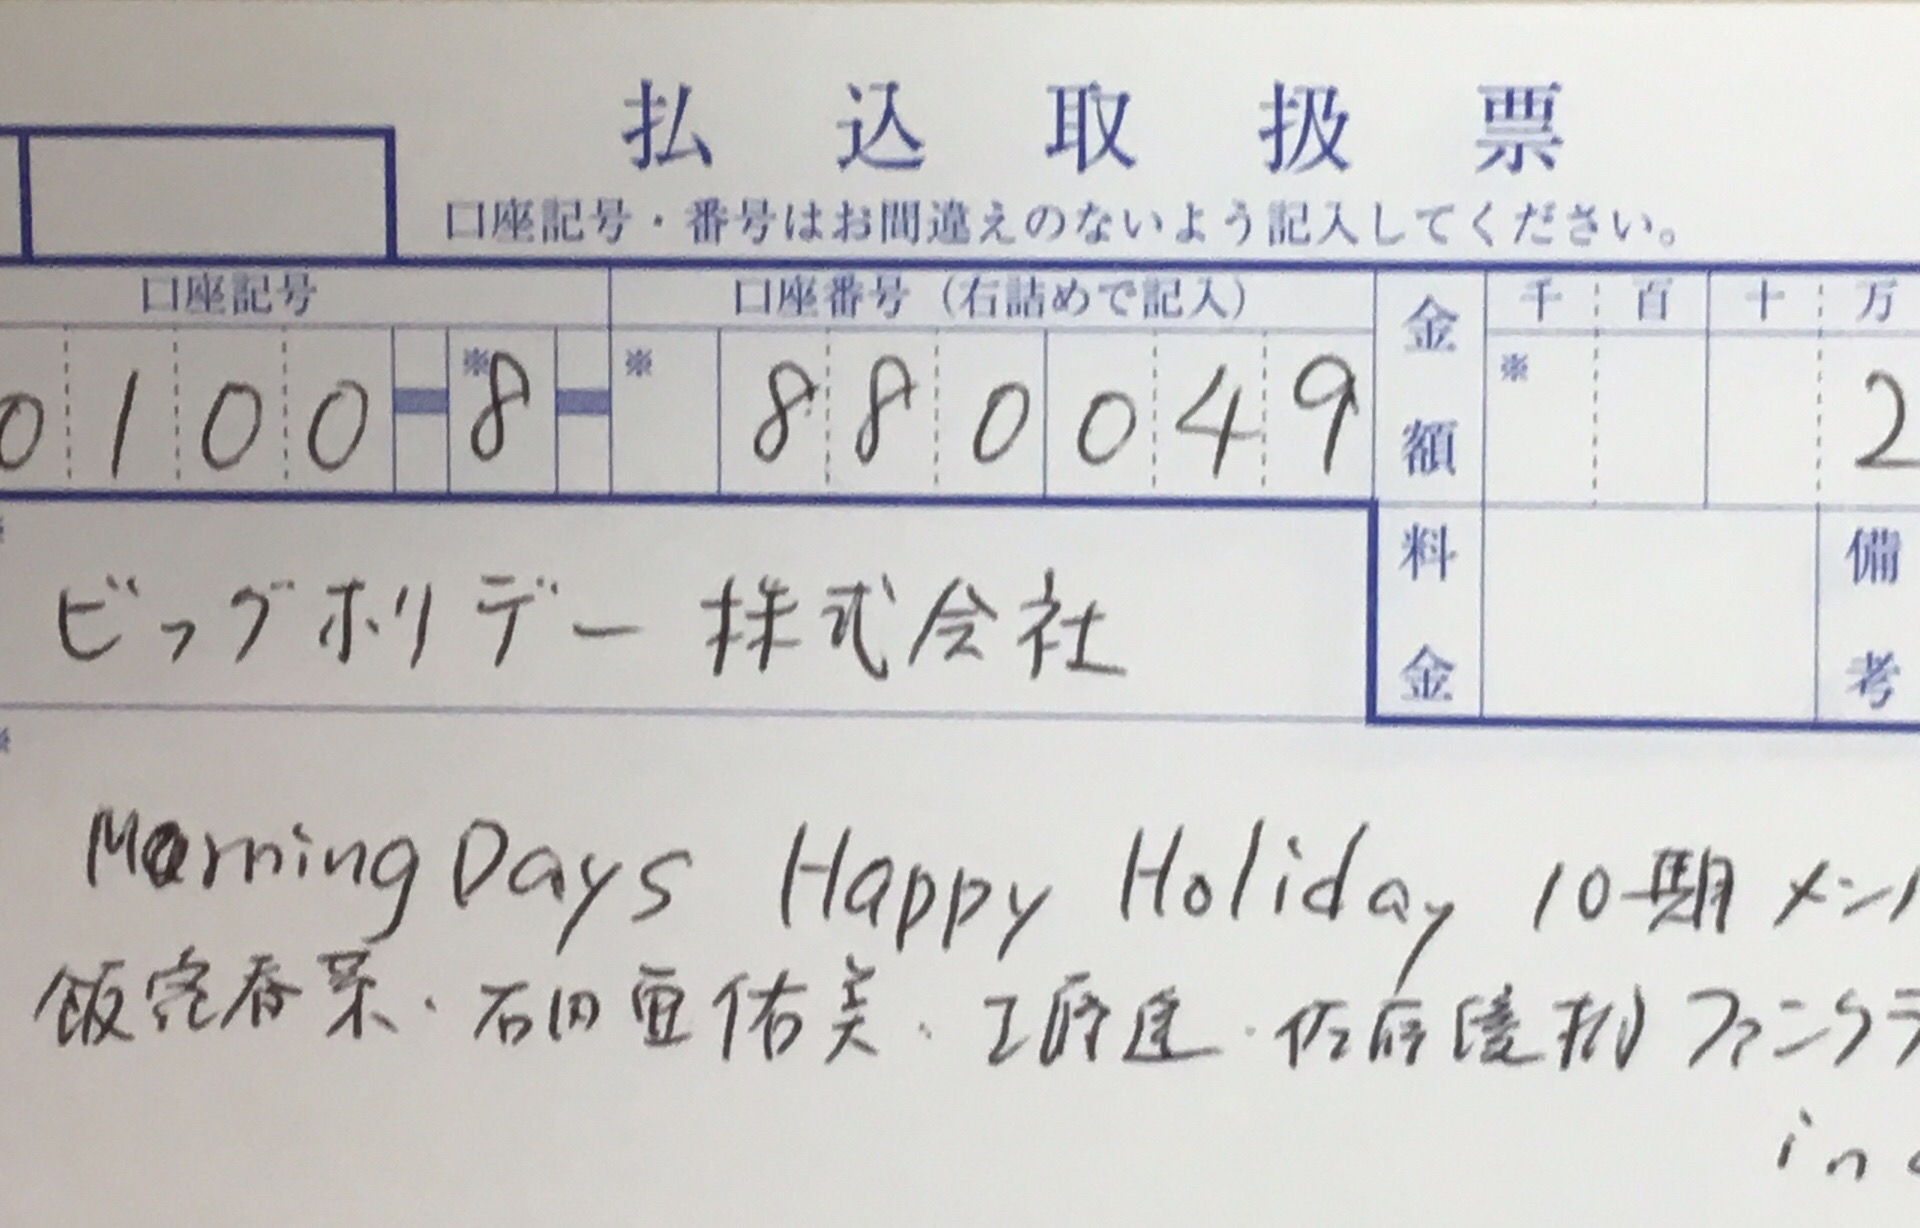 払込取扱票
口座記号・番号はお間違えのないよう記入してください。
口座記号 口座番号（右詰めで記入） 金額 千 百 十 万
0100-※8- ※ 880049 ※ 2
※ ビッグホリデー株式会社 料金 備考
※
Morning Days Happy Holiday 10期メン
飯窪春菜・石田亜佑美・工藤遥・佐藤優樹ファンクラ
in